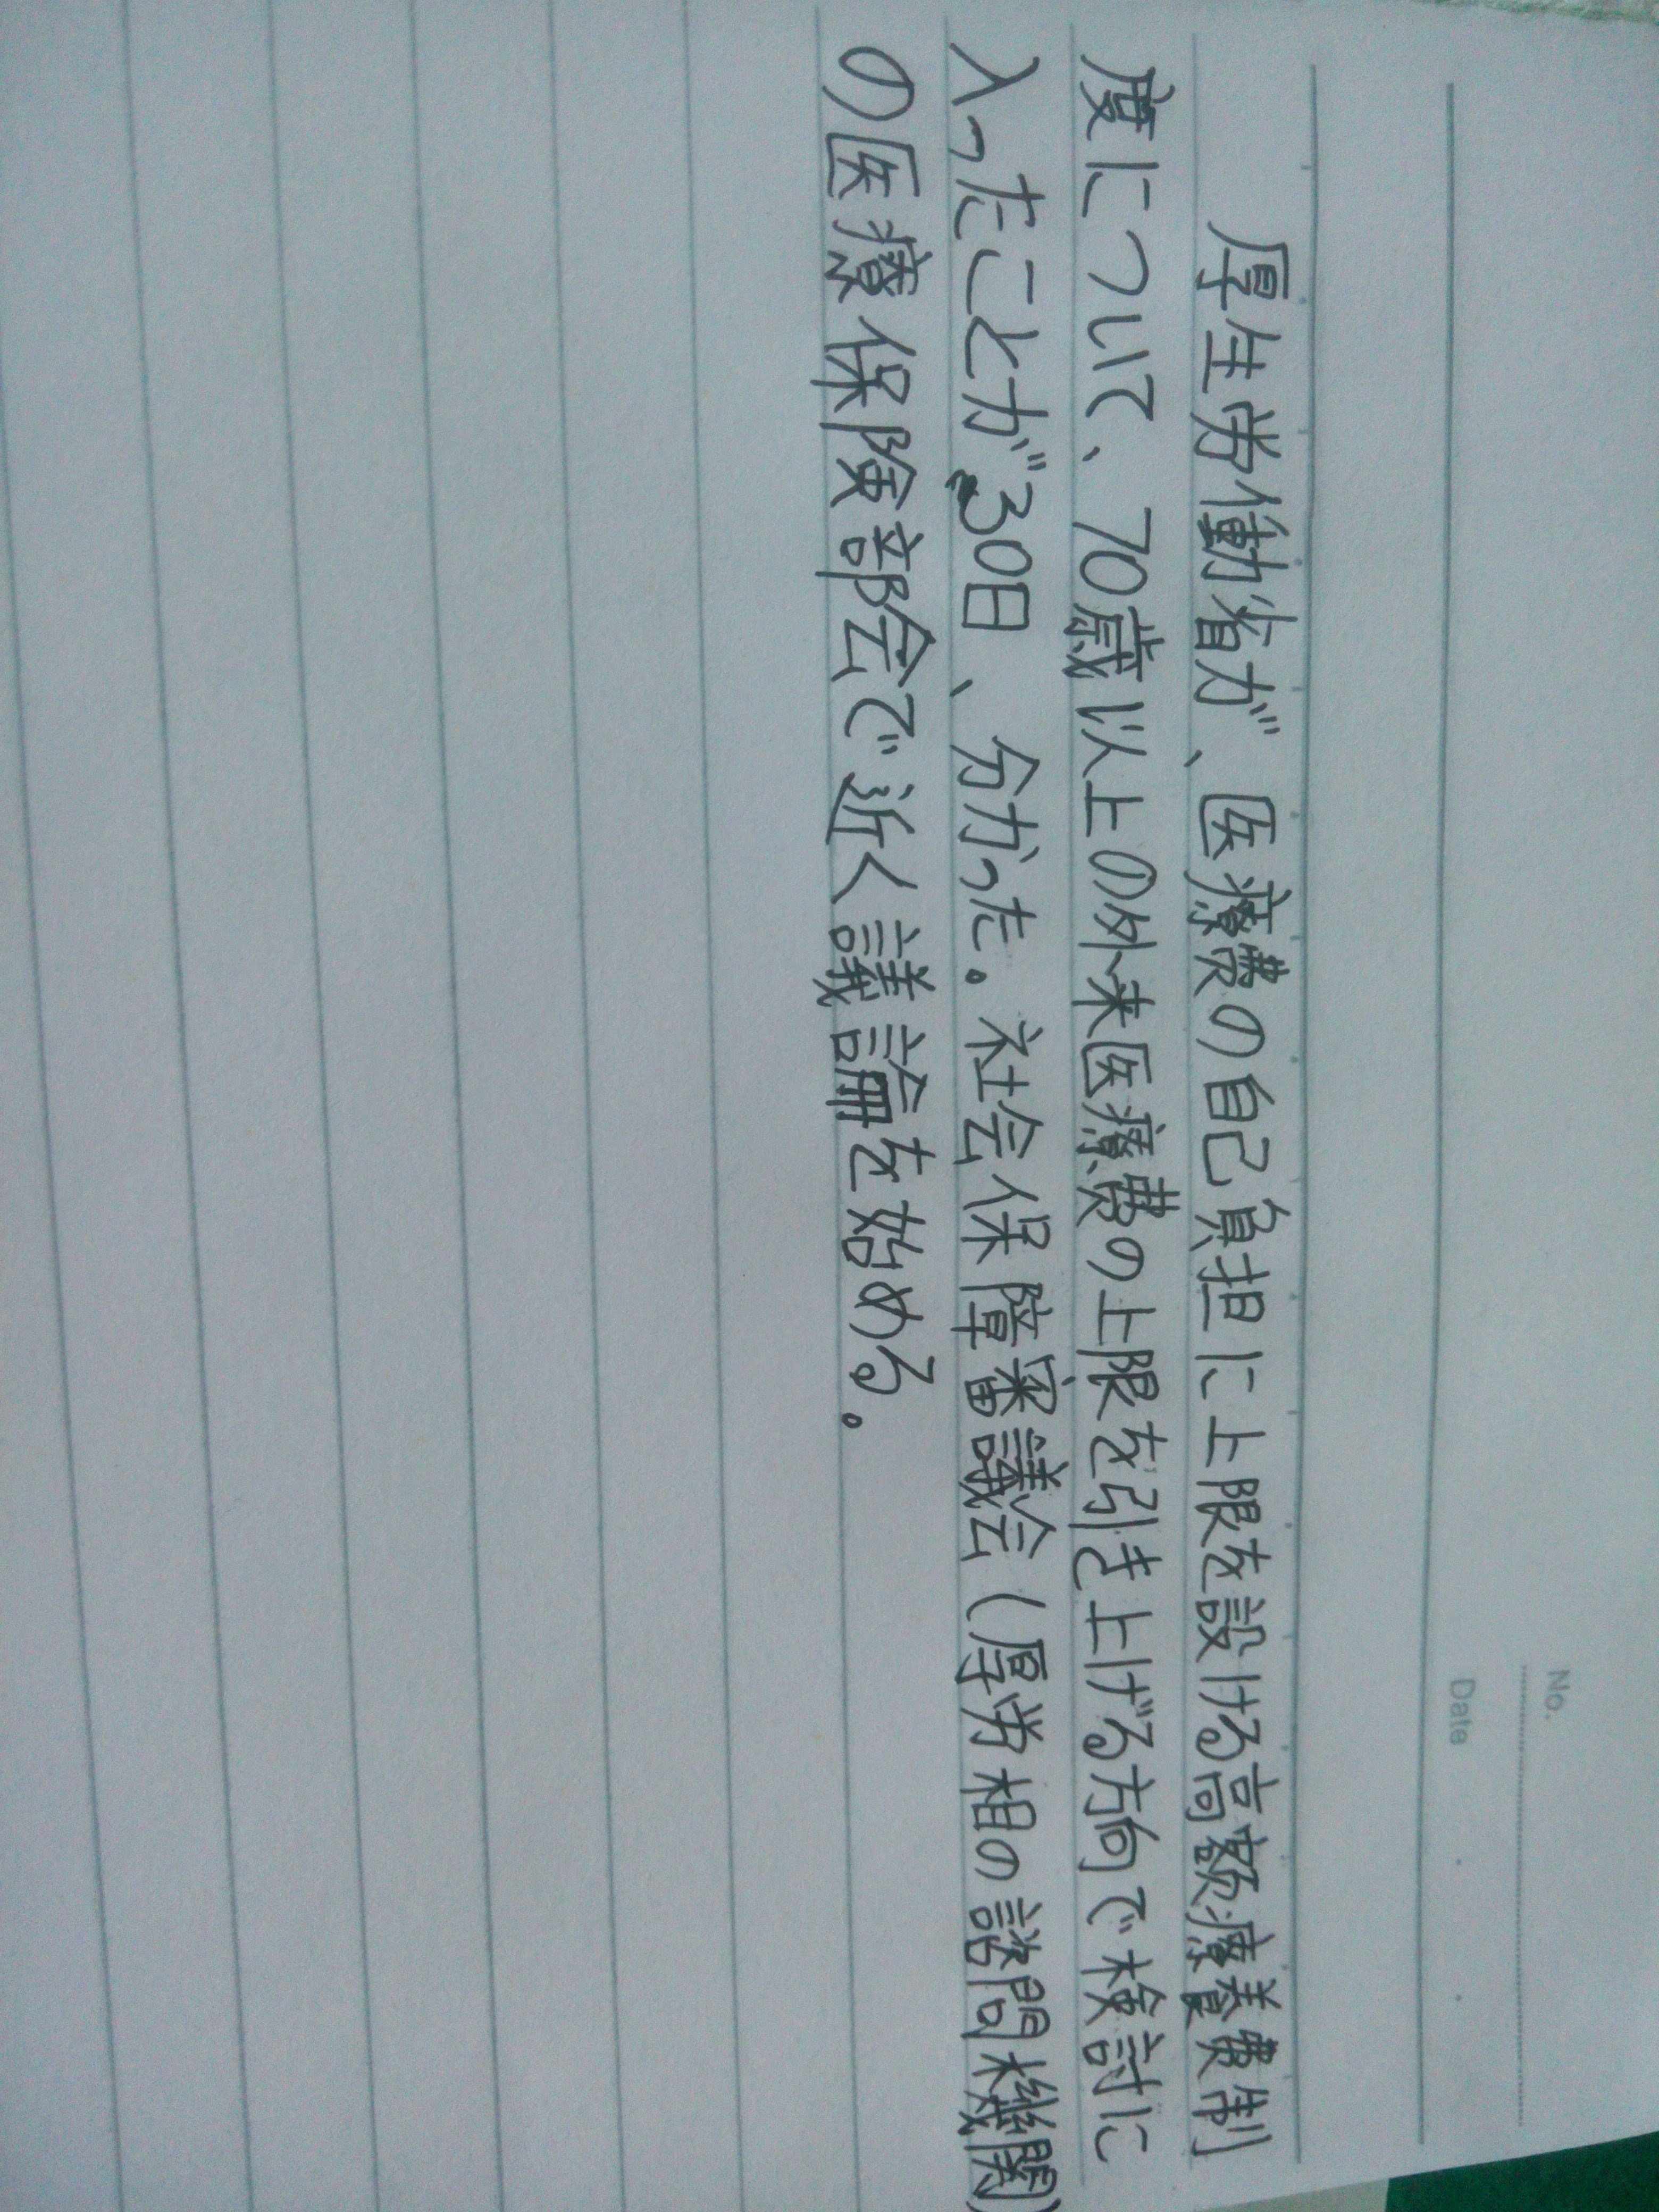 No.
Date
厚生労働省が、医療費の自己負担に上限を設ける高額療養費制
度について、70歳以上の外来医療費の上限を引き上げる方向で検討に
入ったことが30日、分かった。社会保障審議会(厚労相の諮問機関)
の医療保険部会で近く議論を始める。